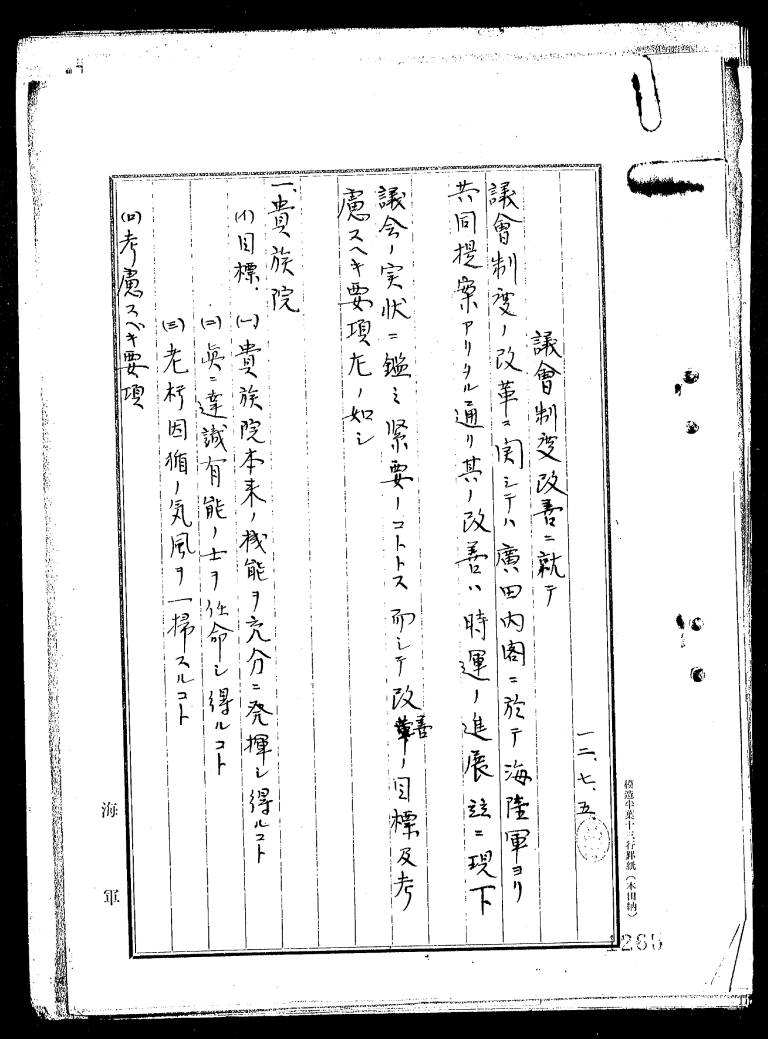 一二、七、五、
議會制度改善ニ就テ
議會制度ノ改革ニ関シテハ廣田内閣ニ於テ海陸軍ヨリ
共同提案アリタル通リ其ノ改善ハ時運ノ進展並ニ現下
議会ノ実状ニ鑑ミ緊要ノコトトス而シテ改善ノ目標及考
慮スヘキ要項左ノ如シ
一、貴族院
(イ)目標.(一)貴族院本来ノ機能ヲ充分ニ発揮シ得ルコト
(二)眞ニ達識有能ノ士ヲ任命シ得ルコト
(三)老朽因循ノ気風ヲ一掃スルコト
(ロ)考慮スベキ要項
海軍
模造半葉十三行罫紙(本田納)
1265